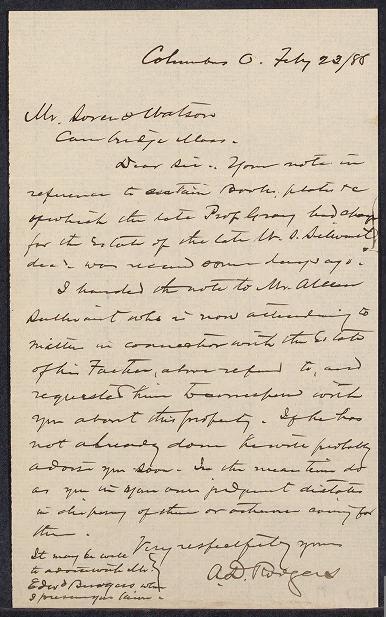 Columbus O. Feby 23/88
Mr. Sereno Watson
Cambridge Mass.
Dear Sir. Your note in
reference to certain Books, plates &c
of which the late Prof. Gray had charge
for the Estate of the late W. S. Sullivant
decd. was received some days ago.
I handed the note to Mr.
Sullivant who is now attending to
matters in connection with the Estate
of his Father, above referred to, and
requested him to correspond with
you about this property. If he has
not already done he will probably
advise you soon. In the mean time do
as you in your own judgment dictates
in disposing of them or otherwise caring for
them.
Very respectfully yours
A.D. Rodgers
It may be well
to advise with Mr
Edwd Burgess whom
I presume you know.